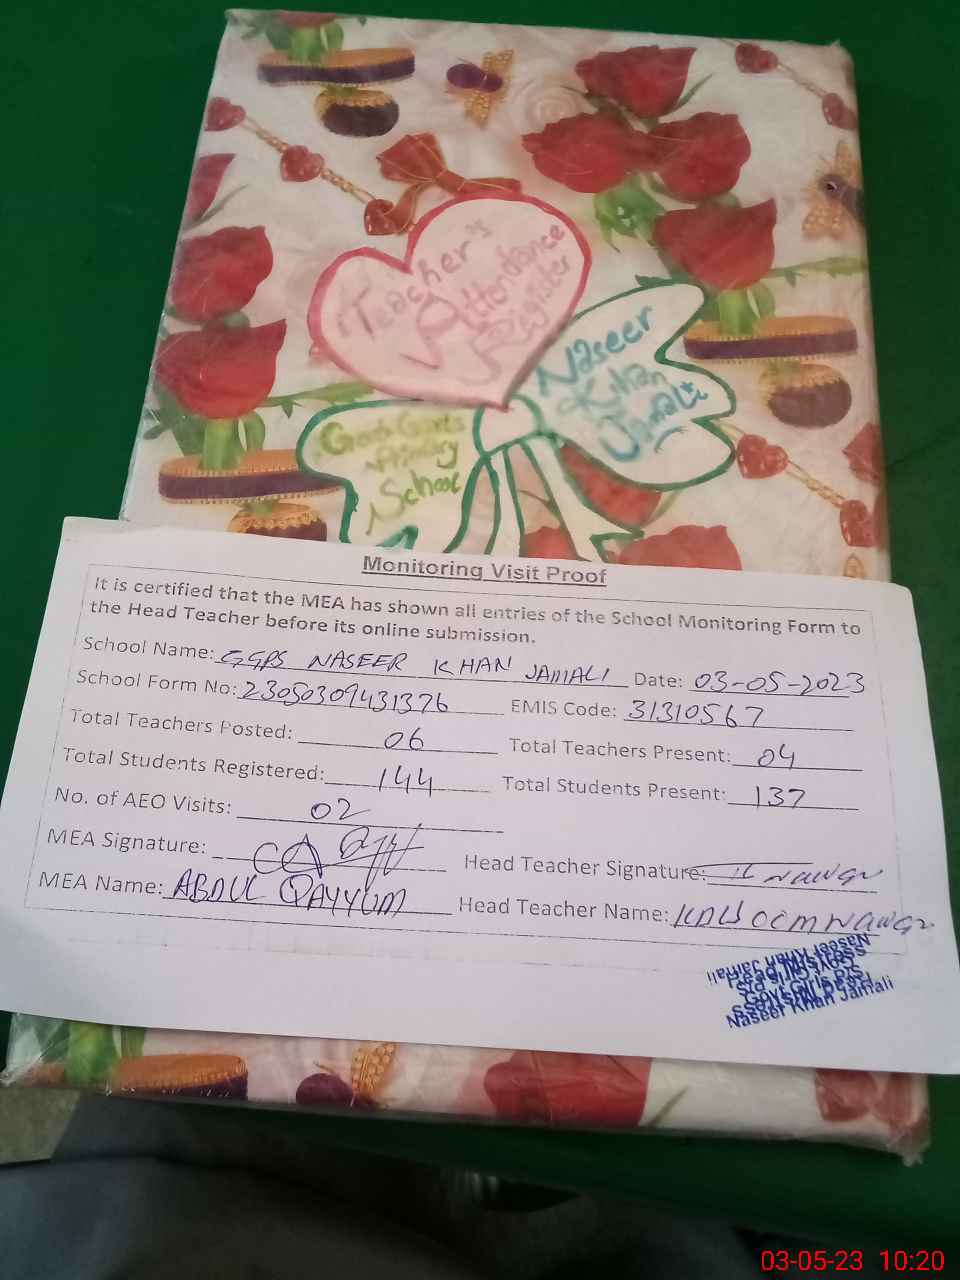 Teacher's
Attendance
Register
Naseer
Khan
Jamali
Govt: Girls
Primary
School
Monitoring Visit Proof
It is certified that the MEA has shown all entries of the School Monitoring Form to
the Head Teacher before its online submission.
School Name: GGPS NASEER KHAN JAMALI Date: 03-05-2023
School Form No: 23050309431376 EMIS Code: 31310567
Total Teachers Posted: 06 Total Teachers Present: 04
Total Students Registered: 144 Total Students Present: 137
No. of AEO Visits: 02
MEA Signature: Head Teacher Signature:
MEA Name: ABDUL QAYYUM Head Teacher Name:
Naseer Khan Jamali
Head Mistress
Govt Girls P/S
Naseer Khan Jamali
03-05-23 10:20